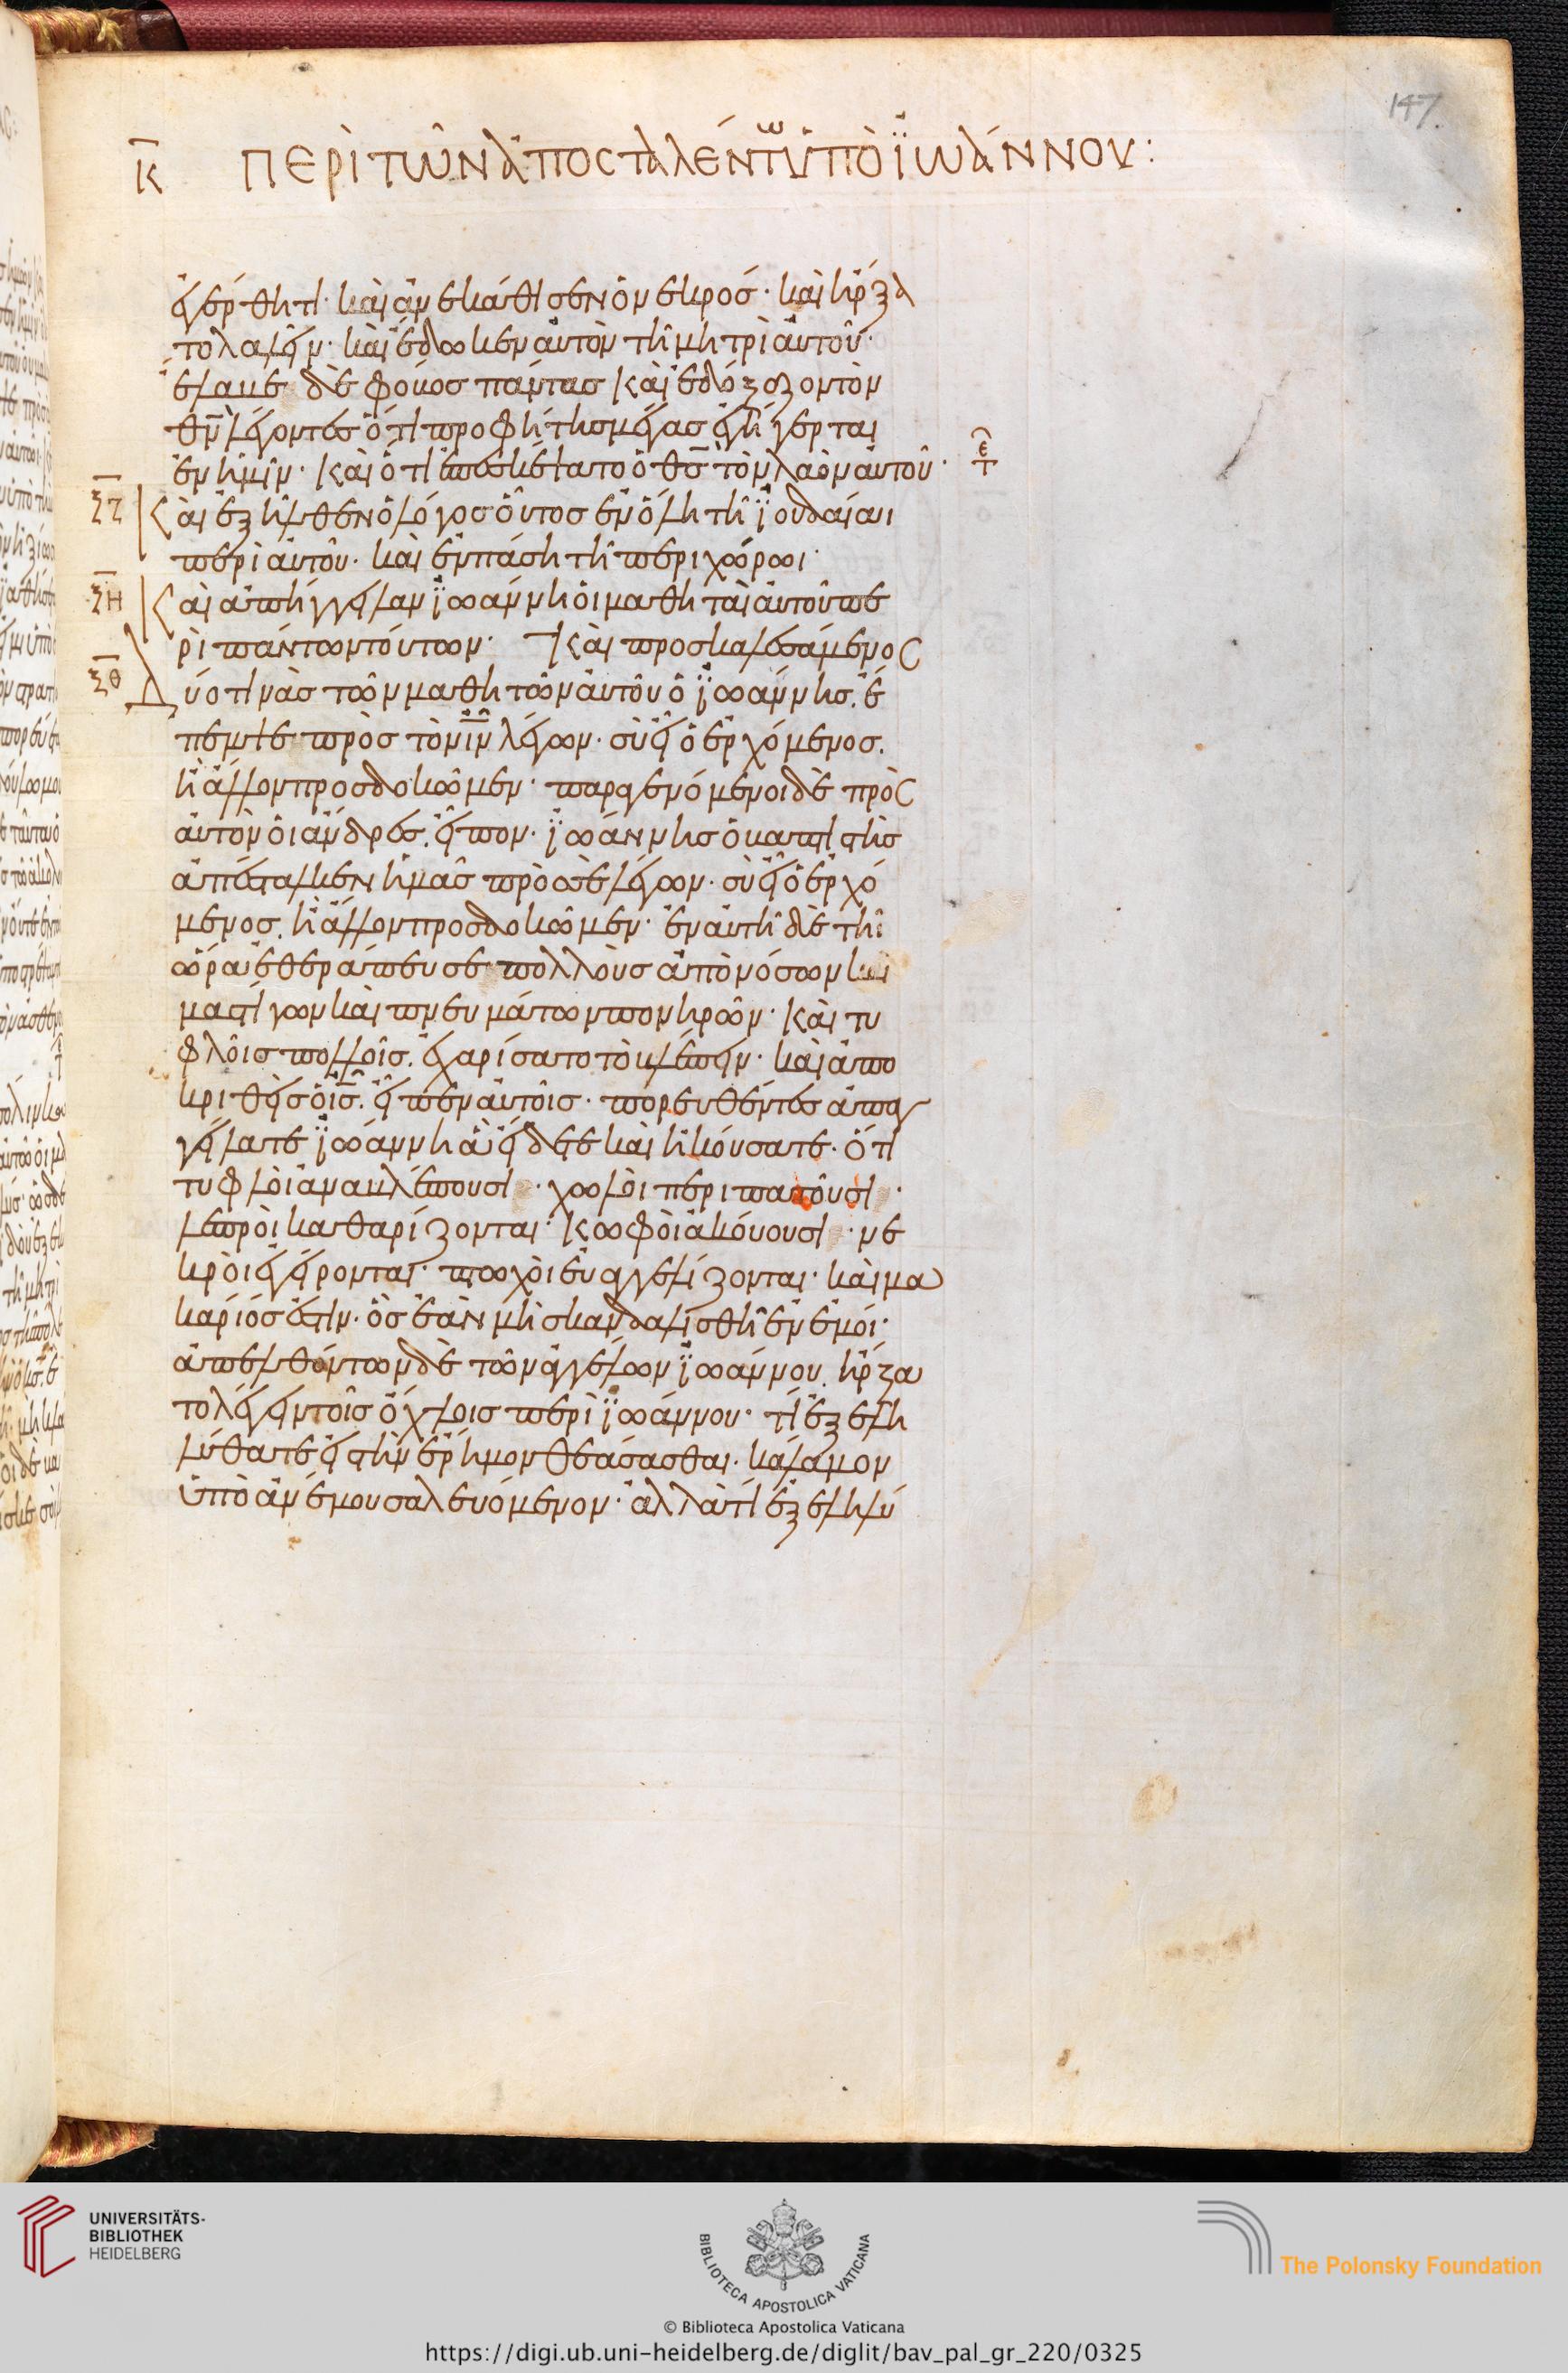 147.
κ ΠΕΡῚ ΤΩ͂Ν ἈΠΟΣΤΑΛΈΝΤΩ ὙΠῸ ἸΩΆΝΝΟΥ:
ἐγέρθητι· καὶ ἀνεκάθισεν ὁ νεκρός· καὶ ἤρξα
το λαλεῖν· καὶ ἔδωκεν αὐτὸν τῆ μητρὶ αὐτοῦ·
ἔλαβε δὲ φόβος πάντας καὶ ἐδόξαζον τὸν
θν̅ λέγοντες ὅτι προφήτης μέγας ἐγήγερται
ἐν ἡμῖν· καὶ ὅτι ἐπεσκέψατο ὁ θς̅ τὸν λαὸν αὐτοῦ·
ξζ Καὶ ἐξῆλθεν ὁ λόγος οὗτος ἐν ὅλη τῆ ἰουδαίαι
περὶ αὐτοῦ· καὶ ἐν πάση τῆ περιχώρωι·
ξη Καὶ ἀπήγγειλαν ἰωάννη οἱ μαθηταὶ αὐτοῦ πε
ρὶ πάντων τούτων· Καὶ προσκαλεσάμενος
ξθ Δύο τινὰς τῶν μαθητῶν αὐτοῦ ὁ ἰωάννης. ἔ
πεμψε πρὸς τὸν ιν̅ λέγων· σὺ εἶ ὁ ἐρχόμενος.
ἢ ἄλλον προσδοκῶμεν· παραγενόμενοι δὲ πρὸς
αὐτὸν οἱ ἄνδρες. εἶπον· ἰωάννης ὁ βαπτιστὴς
ἀπέσταλκεν ἡμᾶς πρὸς σὲ λέγων· σὺ εἶ ὁ ἐρχό
μενος. ἢ ἄλλον προσδοκῶμεν· ἐν αὐτῆ δὲ τῆ
ὥρα ἐθεράπευσε πολλοὺς ἀπὸ νόσων καὶ
μαστίγων καὶ πνευμάτων πονηρῶν· καὶ τυ
φλοῖς πολλοῖς. ἐχαρίσατο τὸ βλέπειν· καὶ ἀπο
κριθεὶς ὁ ις̅. εἶπεν αὐτοῖς· πορευθέντες ἀπαγ
γείλατε ἰωάννη ἃ εἴδετε καὶ ἠκούσατε· ὅτι
τυφλοὶ ἀναβλέπουσι· χωλοὶ περιπατοῦσι·
λεπροὶ καθαρίζονται· κωφοὶ ἀκούουσι· νε
κροὶ ἐγείρονται· πτωχοὶ εὐαγγελίζονται· καὶ μα
κάριός ἐστιν· ὃς ἐὰν μὴ σκανδαλισθῆ ἐν ἐμοί·
ἀπελθόντων δὲ τῶν ἀγγέλων ἰωάννου. ἤρξα
το λέγειν τοῖς ὄχλοις περὶ ἰωάννου· τί ἐξελη
λύθατε εἰς τὴν ἔρημον θεάσασθαι· κάλαμον
ὑπὸ ἀνέμου σαλευόμενον· ἀλλὰ τί ἐξεληλύ
UNIVERSITÄTS-
BIBLIOTHEK
HEIDELBERG
BIBLIOTECA APOSTOLICA VATICANA
The Polonsky Foundation
© Biblioteca Apostolica Vaticana
https://digi.ub.uni-heidelberg.de/diglit/bav_pal_gr_220/0325